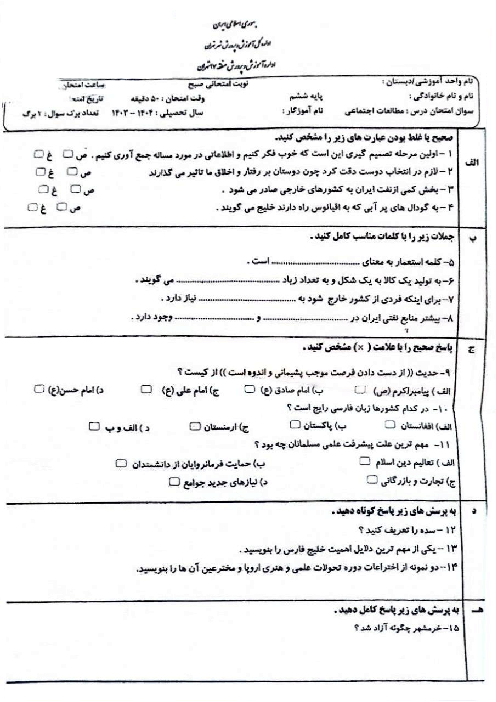 جمهوری اسلامی ایران
اداره کل آموزش و پرورش شهر تهران
اداره آموزش و پرورش منطقه ۱۷ تهران
نام واحد آموزشی/دبستان : نوبت امتحانی صبح ساعت امتحان
نام و نام خانوادگی : پایه ششم وقت امتحان : ۵۰ دقیقه تاریخ امتحا
سوال امتحان درس : مطالعات اجتماعی نام آموزگار : سال تحصیلی : ۱۴۰۴ – ۱۴۰۳ تعداد برگ سوال : ۲ برگ
الف صحیح یا غلط بودن عبارت های زیر را مشخص کنید.
۱ – اولین مرحله تصمیم گیری این است که خوب فکر کنیم و اطلاعاتی در مورد مساله جمع آوری کنیم . ص □ غ □
۲ – لازم در انتخاب دوست دقت کرد چون دوستان بر رفتار و اخلاق ما تاثیر می گذارند ص □ غ □
۳ – بخش کمی ازنفت ایران به کشورهای خارجی صادر می شود . ص □ غ □
۴ – به گودال های پر آبی که به اقیانوس راه دارند خلیج می گویند . ص □ غ □
ب جملات زیر را با کلمات مناسب کامل کنید .
۵– کلمه استعمار به معنای ........................ است .
۶– به تولید یک کالا به یک شکل و به تعداد زیاد ........................ می گویند .
۷– برای اینکه فردی از کشور خارج شود به ........................ نیاز دارد .
۸– بیشتر منابع نفتی ایران در ........................ و ........................ وجود دارد .
ج پاسخ صحیح را با علامت ( × ) مشخص کنید .
۹– حدیث (( از دست دادن فرصت موجب پشیمانی و اندوه است )) از کیست ؟
الف ) پیامبراکرم (ص) □ ب) امام صادق (ع) □ ج) امام علی (ع) □ د) امام حسن(ع) □
۱۰– در کدام کشورها زبان فارسی رایج است ؟
الف) افغانستان □ ب) پاکستان □ ج) ارمنستان □ د ) الف و ب □
۱۱– مهم ترین علت پیشرفت علمی مسلمانان چه بود ؟
الف ) تعالیم دین اسلام □ ب) حمایت فرمانروایان از دانشمندان □
ج) تجارت و بازرگانی □ د) نیازهای جدید جوامع □
د به پرسش های زیر پاسخ کوتاه دهید .
۱۲ – سده را تعریف کنید ؟
۱۳ – یکی از مهم ترین دلایل اهمیت خلیج فارس را بنویسید .
۱۴–دو نمونه از اختراعات دوره تحولات علمی و هنری اروپا و مخترعین آن ها را بنویسید.
هـ به پرسش های زیر پاسخ کامل دهید .
۱۵–خرمشهر چگونه آزاد شد ؟